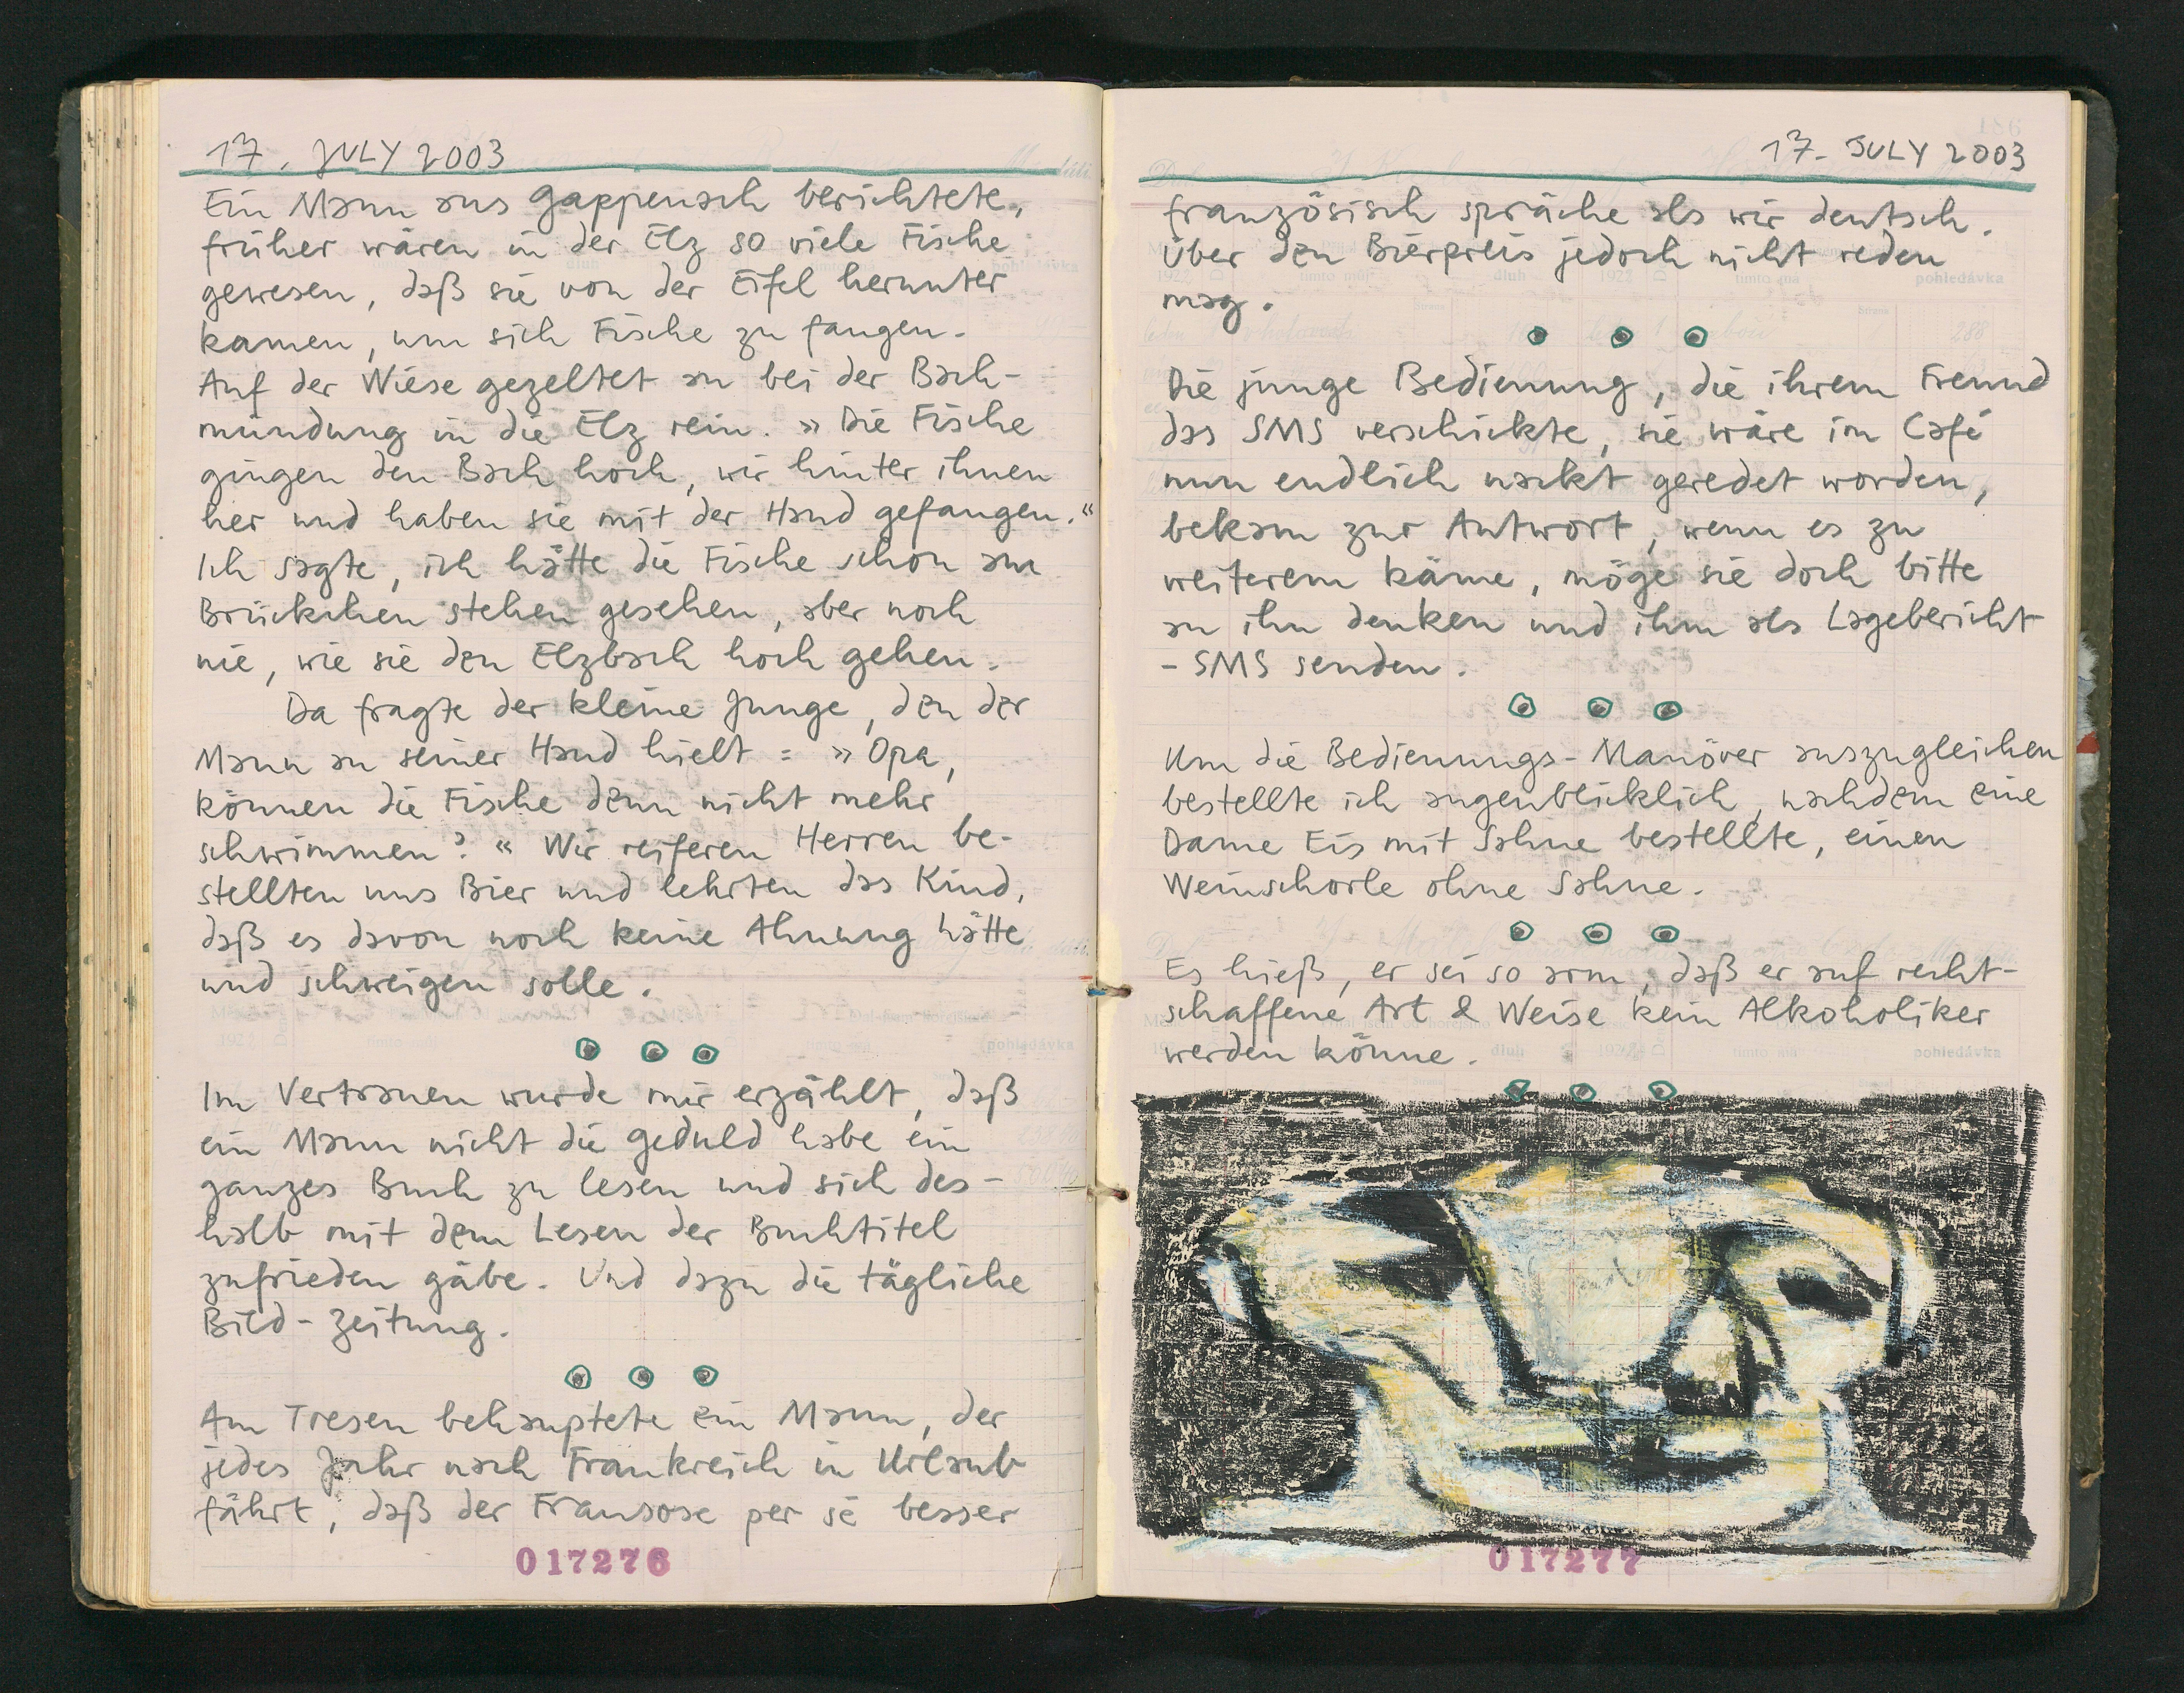 17. JULY 2003
Ein Mann aus Gappenach berichtete,
früher wären in der Elz so viele Fische
gewesen, daß sie von der Eifel herunter
kamen, um sich Fische zu fangen.
Auf der Wiese gezeltet an bei der Bach-
mündung in die Elz rein. »Die Fische
gingen den Bach hoch, wir hinter ihnen
her und haben sie mit der Hand gefangen.“
Ich sagte, ich hätte die Fische schon am
Brückchen stehen gesehen, aber noch
nie, wie sie den Elzbach hoch gehen.
Da fragte der kleine Junge, den der
Mann an seiner Hand hielt: »Opa,
können die Fische denn nicht mehr
schwimmen?« Wir reiferen Herren be-
stellten uns Bier und lehrten das Kind,
daß es davon noch keine Ahnung hätte
und schweigen solle.
Im Vertrauen wurde mir erzählt, daß
ein Mann nicht die Geduld habe ein
ganzes Buch zu lesen und sich des-
halb mit dem Lesen der Buchtitel
zufrieden gäbe. Und dazu die tägliche
Bild-Zeitung.
Am Tresen behauptete ein Mann, der
jedes Jahr nach Frankreich in Urlaub
fährt, daß der Fransose per sé besser
017276
17. JULY 2003
französisch spräche als wir deutsch.
Über den Bierpreis jedoch nicht reden
mag.
Die junge Bedienung, die ihrem Freund
das SMS verschickte, sie wäre im Café
nun endlich nackt geredet worden,
bekam zur Antwort, wenn es zu
weiterem käme, möge sie doch bitte
an ihn denken und ihm als Lagebericht
- SMS senden.
Um die Bedienungs-Manöver auszugleichen
bestellte ich augenblicklich, nachdem eine
Dame Eis mit Sahne bestellte, einen
Weinschorle ohne Sahne.
Es hieß, er sei so arm, daß er auf recht-
schaffene Art & Weise kein Alkoholiker
werden könne.
017277